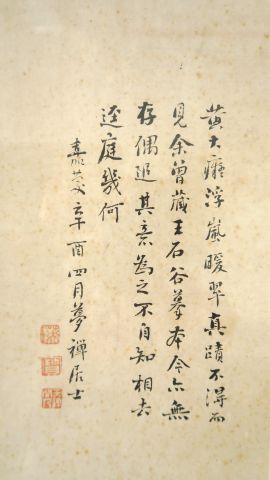 黄大癡浮嵐暖翠真蹟不得而
見余曾藏王石谷摹本今亦無
存偶追其意為之不自知相去
逕庭幾何
嘉慶辛酉四月夢禪居士